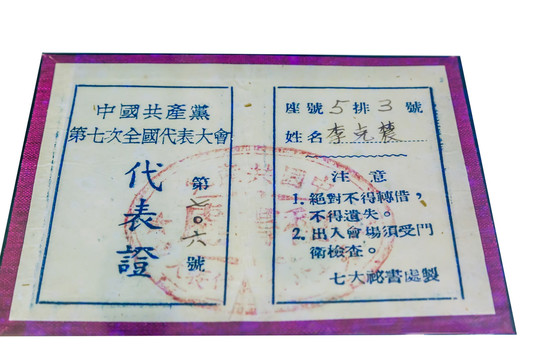 中國共產黨
第七次全國代表大會
代表證
第七〇六號
座號5排3號
姓名 李克農
注意
1. 絕對不得轉借，
不得遺失。
2. 出入會場須受門
衛檢查。
七大祕書處製